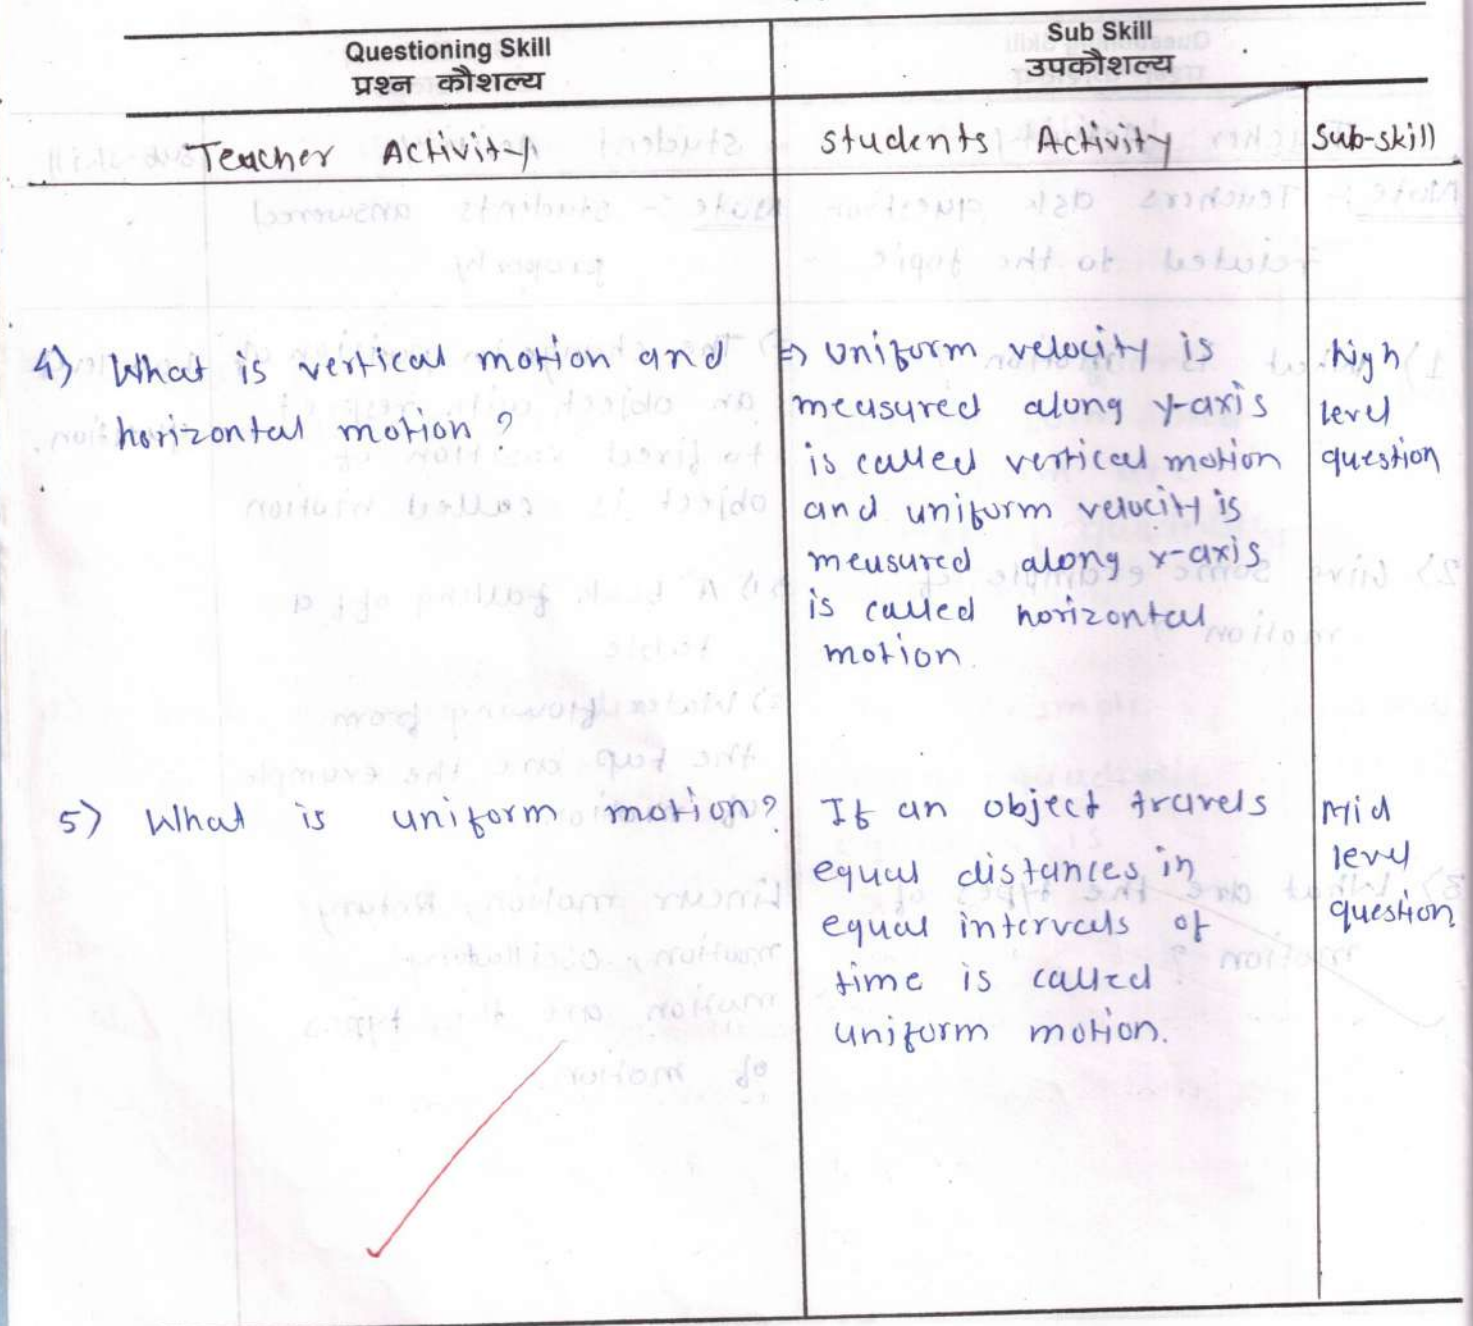 Questioning Skill
प्रश्न कौशल्य
Sub Skill
उपकौशल्य
Teacher Activity
students Activity
Sub-skill
4) What is vertical motion and
horizontal motion ?
⇒ uniform velocity is
measured along y-axis
is called vertical motion
and uniform velocity is
measured along x-axis
is called horizontal
motion.
high
level
question
5) What is uniform motion?
If an object travels
equal distances in
equal intervals of
time is called
uniform motion.
Mid
level
question